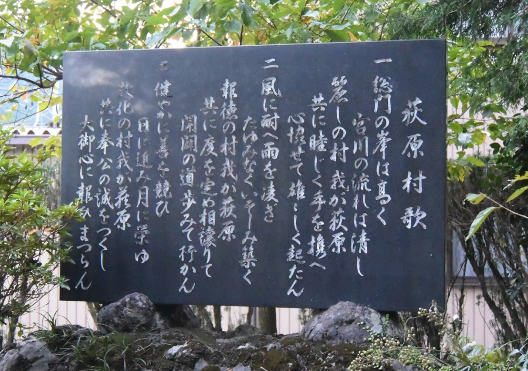 萩原村歌
一 総門の岸は高く
宮川の流れは清し
麗しの村我が萩原
共に睦じく手を携へ
心協せて雄々しく起たん
二 風に耐へ雨を凌ぎ
たゆみなくいそしみ築く
報徳の村我が萩原
共に度を定め相譲りて
開闢の道歩みて行かん
三 健やかに善を競ひ
日に進み月に栄ゆ
文化の村我が萩原
共に奉公の誠をつくし
大御心に報ひまつらん